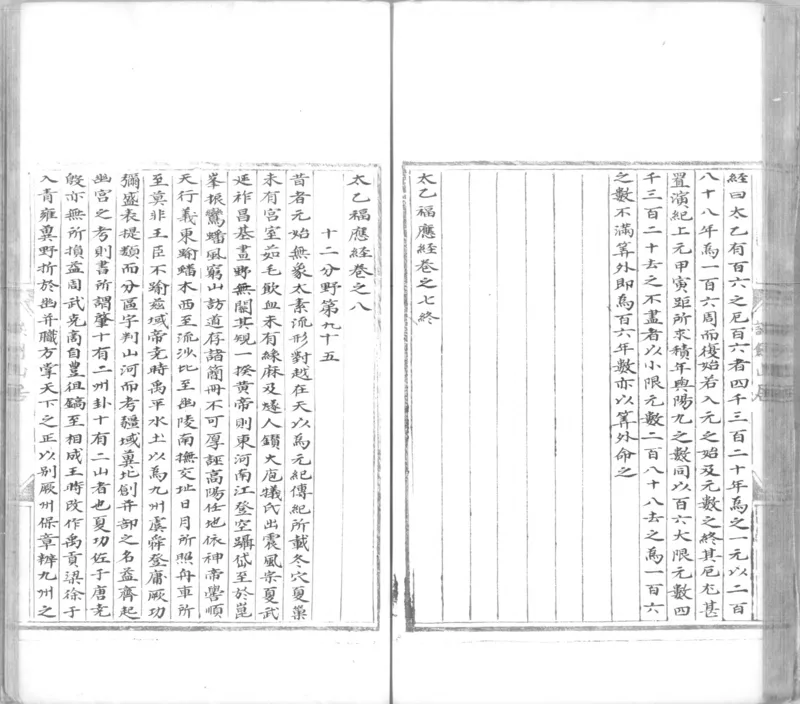 経曰太乙有百六之厄百六者四千三百二十年為之一元以二百
八十八年為一百六周而復始若入元之始及元數之終其厄尤甚
置演紀上元甲寅距所求積年與陽九之數同以百六大限元數四
千三百二十去之不盡者以小限元數二百八十八去之為一百六
之數不滿筭外即為百六年數亦以筭外命之
太乙福應経巻之七終
太乙福應経巻之八
十二分野第九十五
昔者元始無象太素流形對越在天以為元紀傳紀所載冬穴夏巢
未有宮室茹毛飲血未有絲麻及燧人鑚火庖犧氏出震風宗夏武
廷祚昌基畫野無聞其規一揆黄帝則東河南江登空躡岱至於崑
峯振鸞蟠風窮山訪道存諸簡冊不可厚誣高陽任地依神帝嚳順
天行義東踰蟠木西至流沙北至幽陵南撫交址日月所照舟車所
至莫非王臣不踰茲域帝堯時禹平水土以為九州虞舜登庸厥功
彌盛表提類而分區宇判山河而考疆域冀北創并部之名益齊起
幽宮之考則書所謂肇十有二州卦十有二山者也夏功佐于唐堯
殷亦無所損益周武克商自豊徂鎬至相成王時改作禹貢梁徐于
入青雍冀野折於幽并職方掌天下之正以別厥州保章辨九州之